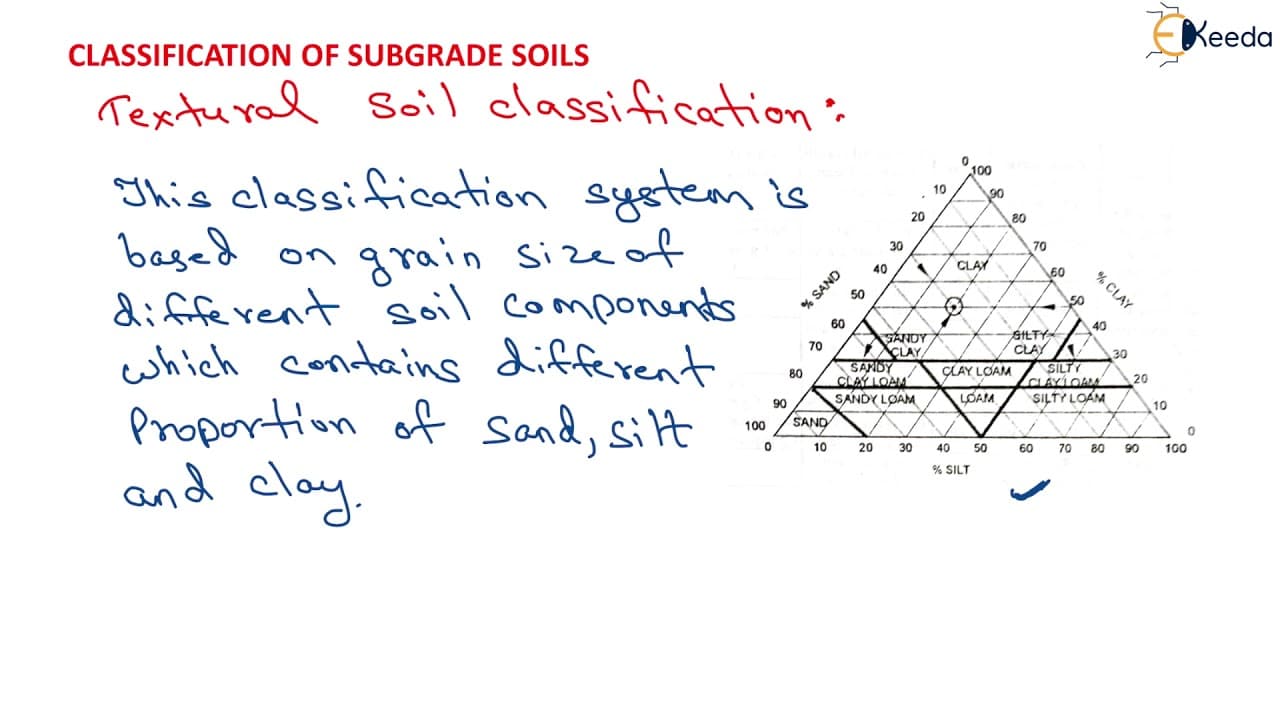 EKeeda
CLASSIFICATION OF SUBGRADE SOILS
Textural Soil classification :
This classification system is
based on grain size of
different soil components
which contains different
Proportion of sand, silt
and clay.
0
100
10
90
20
80
30
70
40
CLAY
60
% SAND
% CLAY
50
50
60
SANDY
CLAY
SILTY
CLAY
40
70
30
80
SANDY
CLAY LOAM
CLAY LOAM
SILTY
CLAY LOAM
20
90
SANDY LOAM
LOAM
SILTY LOAM
10
100
SAND
0
0 10 20 30 40 50 60 70 80 90 100
% SILT